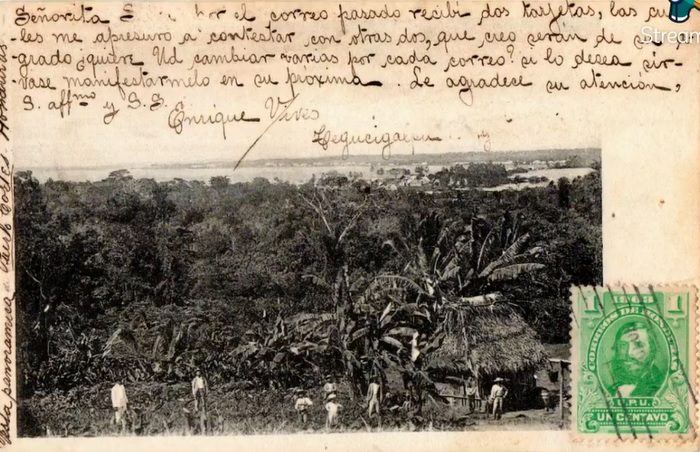 Señorita por el correo pasado recibí dos tarjetas, las cua
les me apresuro a contestar con otras dos, que creo serán de su a
grado ¿quiere Ud cambiar varias por cada correo? si lo desea sir-
vase manifestarmelo en su proxima. Le agradece su atención,
S. affmo y S. S.
Enrique Vives
Tegucigalpa
Vista panoramica de Puerto Cortés. Honduras
Stream
1 1903 1
CORREOS DE HONDURAS
U.P.U.
UN CENTAVO